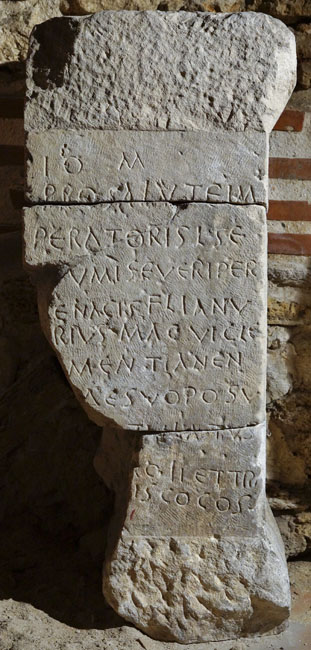 I O M
PRO SALVTE IM
PERATORIS L SE
SEVERI PER
ENACIS F LIANV
RIVS MAG VICI E
MENTIANEN
ES VOPOSV
II ET TR
IS CO COS